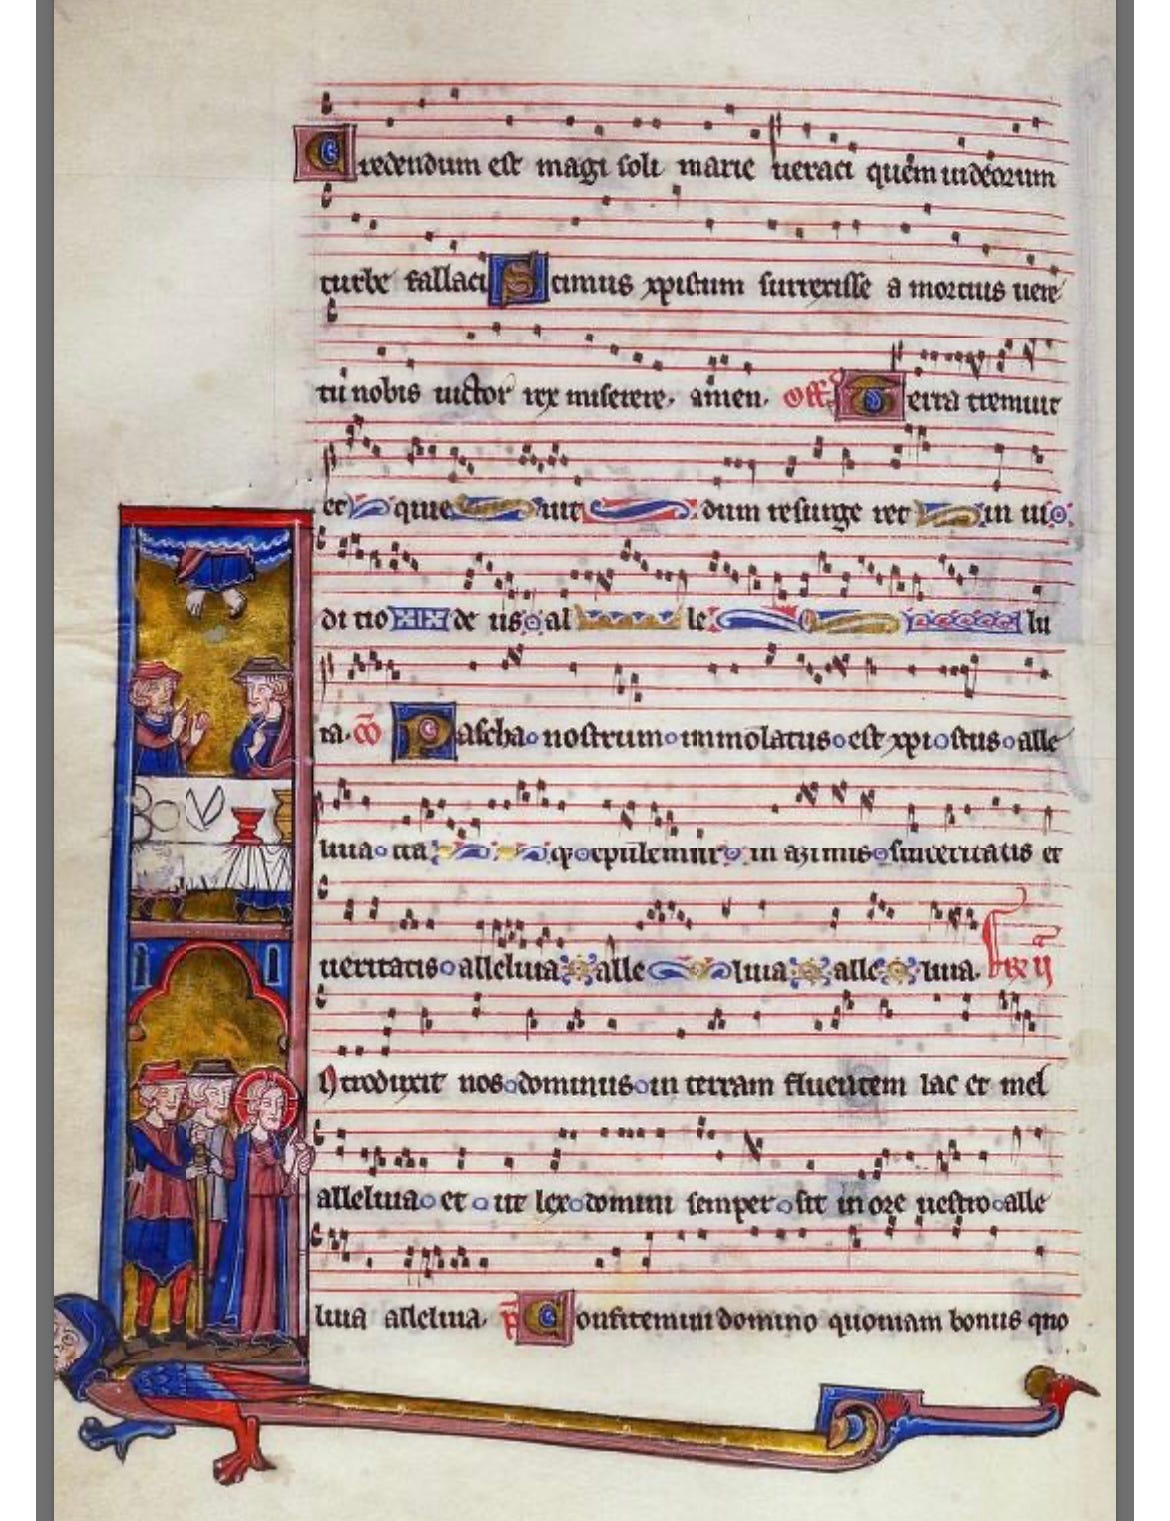 Credendum est magi soli marie ueraci quem iudeorum
turbe fallaci Scimus xpistum surrexisse a mortuis uere
tu nobis uictor rex miserere. amen. Off. Terra tremuit
et quie uit dum resurge ret in iu
di tio de us al le lu
ia. co Pascha nostrum immolatus est xpistus alle
luia ita q epulemur in azimis sinceritatis et
ueritatis alleluia alle luia alle luia. fr ij a
Ntroduxit nos dominus in terram fluentem lac et mel
alleluia et ut lex domini semper sit in ore uestro alle
luia alleluia. ps Confitemini domino quoniam bonus qno